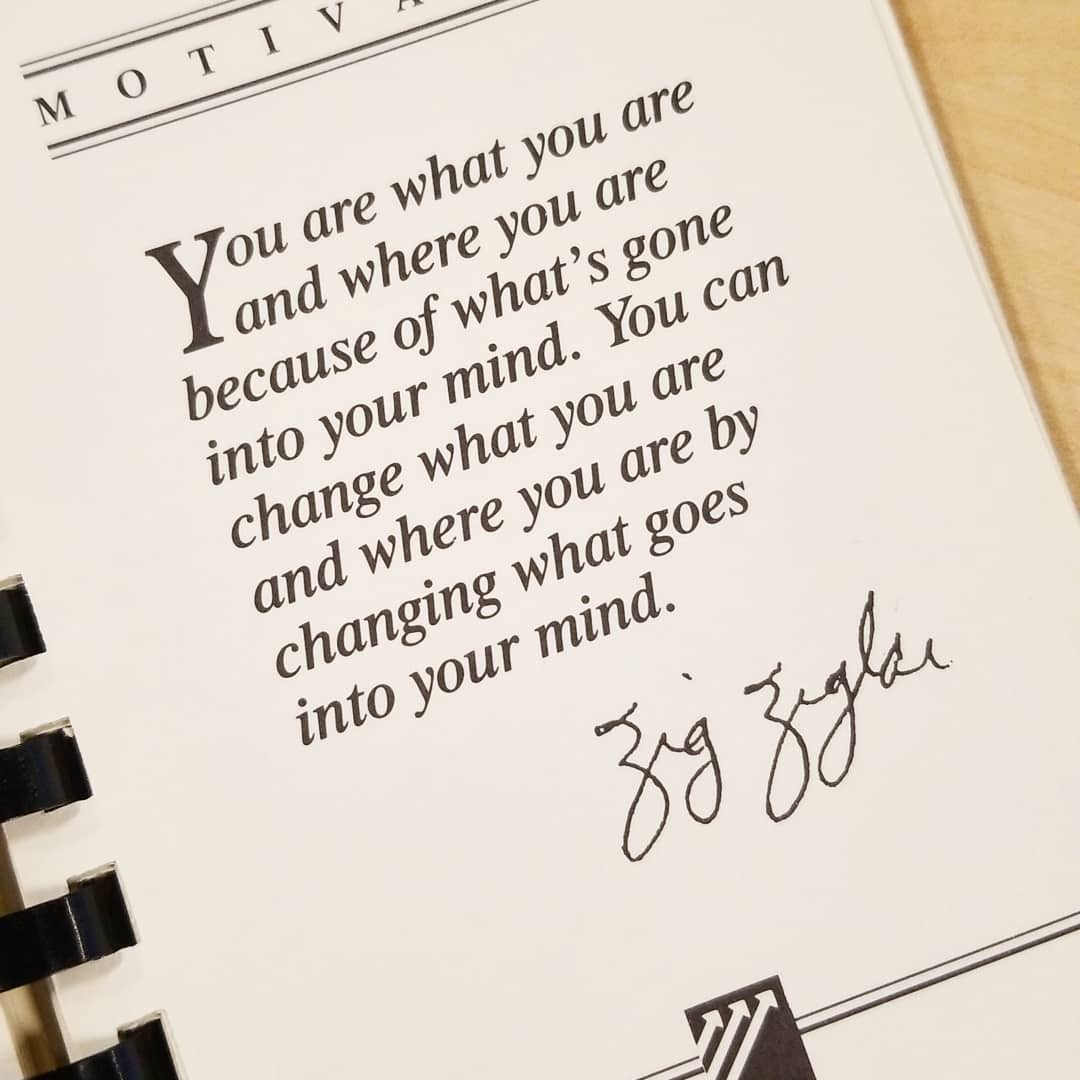 M O T I V A
You are what you are
and where you are
because of what’s gone
into your mind. You can
change what you are
and where you are by
changing what goes
into your mind.
Zig Ziglar